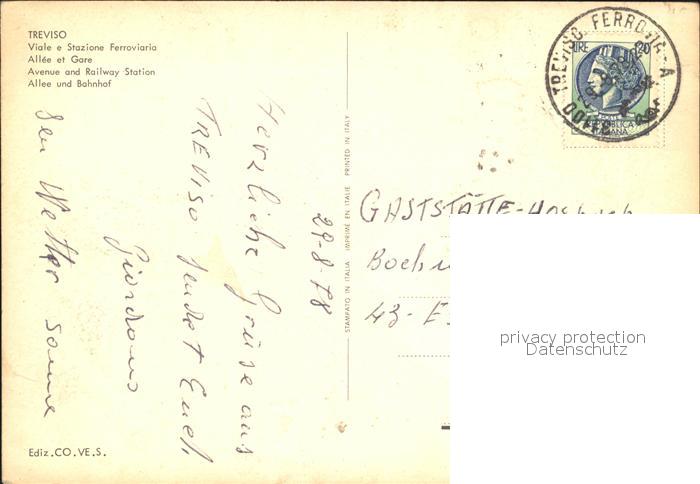 TREVISO
Viale e Stazione Ferroviaria
Allée et Gare
Avenue and Railway Station
Allee und Bahnhof
29-8-78
Herzliche Grüse aus
TREVISO sendet Euch
Giordano
Wetter sonne
Ediz.CO.VE.S.
STAMPATO IN ITALIA IMPRIMÉ EN ITALIE PRINTED IN ITALY
TREVISO FERROVIA
31100
LIRE 120
GASTSTÄTTE-
43-
privacy protection
Datenschutz